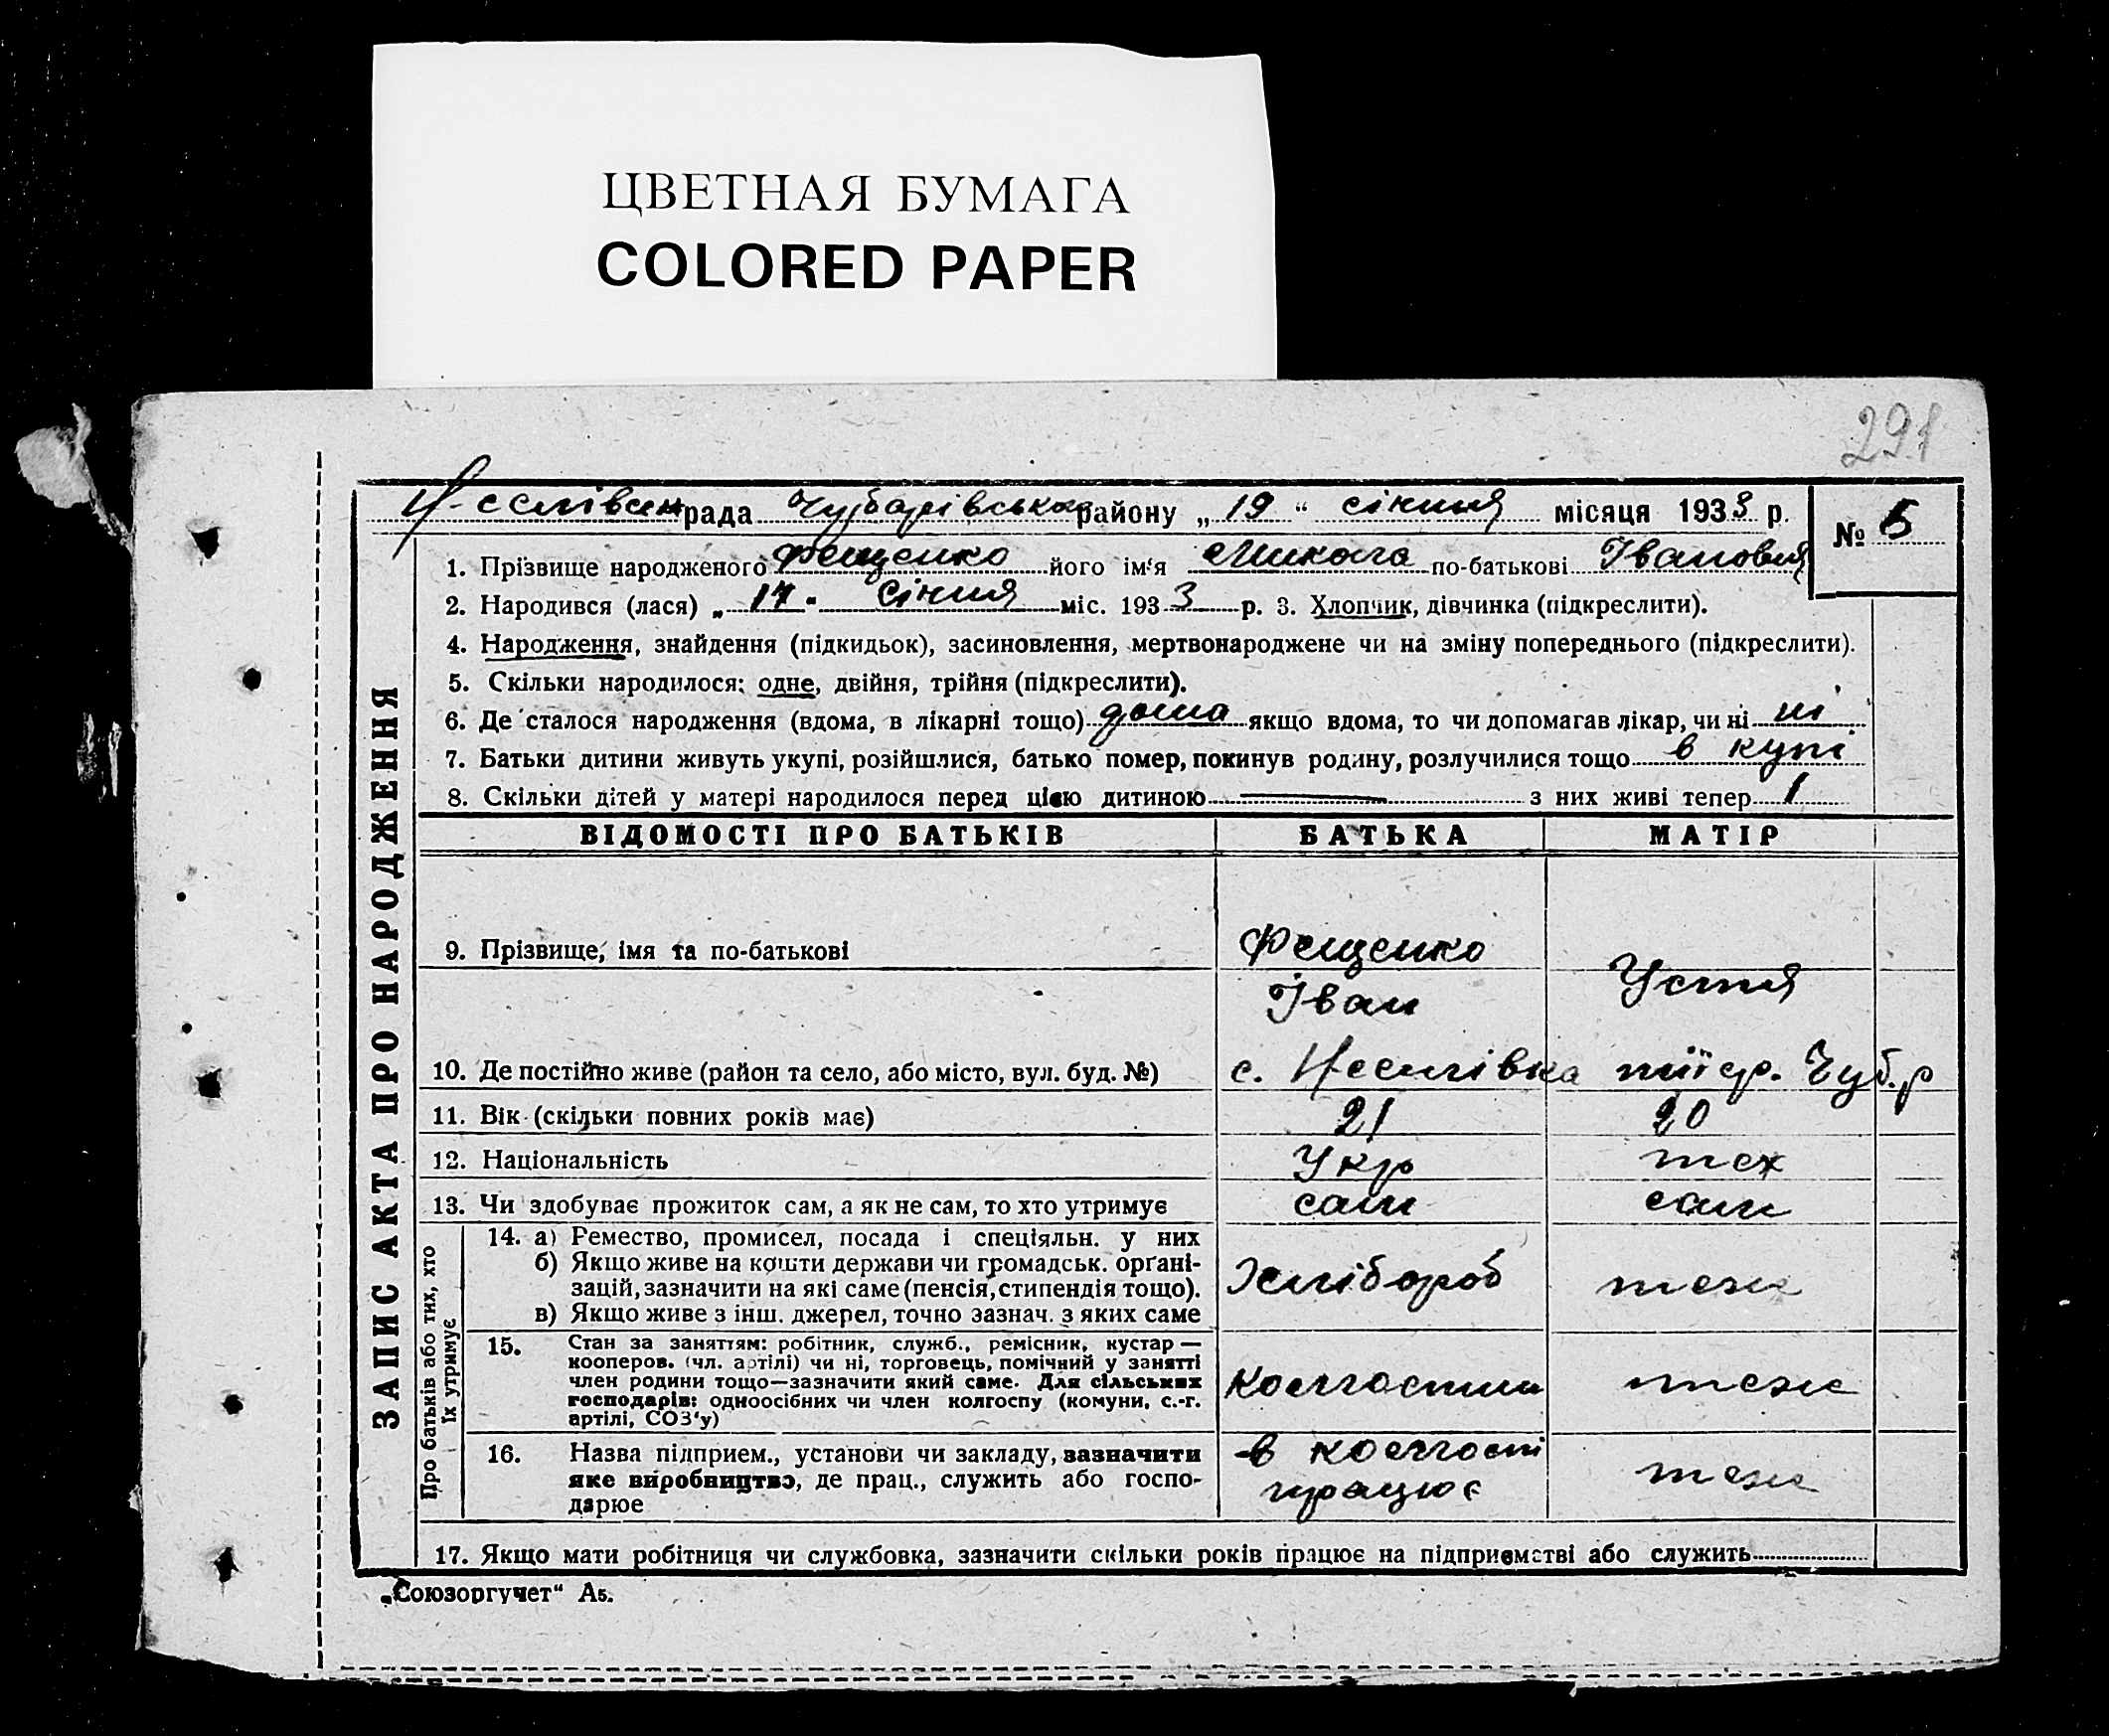 ЦВЕТНАЯ БУМАГА
COLORED PAPER
291
рада Чубарівська району „ 19 “ січня місяця 1933 р.
№ 5
1. Прізвище народженого Фещенко його ім‘я Микола по-батькові Іванович
2. Народився (лася) „ 17 " Січня міс. 193 3 р. 3. Хлопчик, дівчинка (підкреслити).
4. Народження, знайдення (підкидьок), засиновлення, мертвонароджене чи на зміну попереднього (підкреслити).
5. Скільки народилося: одне, двійня, трійня (підкреслити).
6. Де сталося народження (вдома, в лікарні тощо) дома якщо вдома, то чи допомагав лікар, чи ні ні
7. Батьки дитини живуть укупі, розійшлися, батько помер, покинув родину, розлучилися тощо в купі
8. Скільки дітей у матері народилося перед цією дитиною — з них живі тепер 1
ЗАПИС АКТА ПРО НАРОДЖЕННЯ
ВІДОМОСТІ ПРО БАТЬКІВ БАТЬКА МАТІР
9. Прізвище, імя та по-батькові Фещенко
Іван Устя
10. Де постійно живе (район та село, або місто, вул. буд. №) с. Чуб. р
11. Вік (скільки повних років має) 21 20
12. Національність Укр теж
13. Чи здобуває прожиток сам, а як не сам, то хто утримує сам сам
Про батьків або тих, хто
їх утримує
14. а) Ремество, промисел, посада і спеціяльн. у них
б) Якщо живе на кошти держави чи громадськ. орґані-
зацій, зазначити на які саме (пенсія, стипендія тощо).
в) Якщо живе з інш. джерел, точно зазнач. з яких саме
Хлібороб теж
15. Стан за заняттям: робітник, служб., ремісник, кустар —
кооперов. (чл. артілі) чи ні, торговець, помічний у занятті
член родини тощо—зазначити який саме. Для сільських
господарів: одноосібних чи член колгоспу (комуни, с.-г.
артілі, СОЗ‘у)
Колгоспник теж
16. Назва підприєм., установи чи закладу, зазначити
яке виробництво, де прац., служить або госпо-
дарює
в колгоспі
працює
теж
17. Якщо мати робітниця чи службовка, зазначити скільки років працює на підприємстві або служить
„Союзоргучет“ А5.